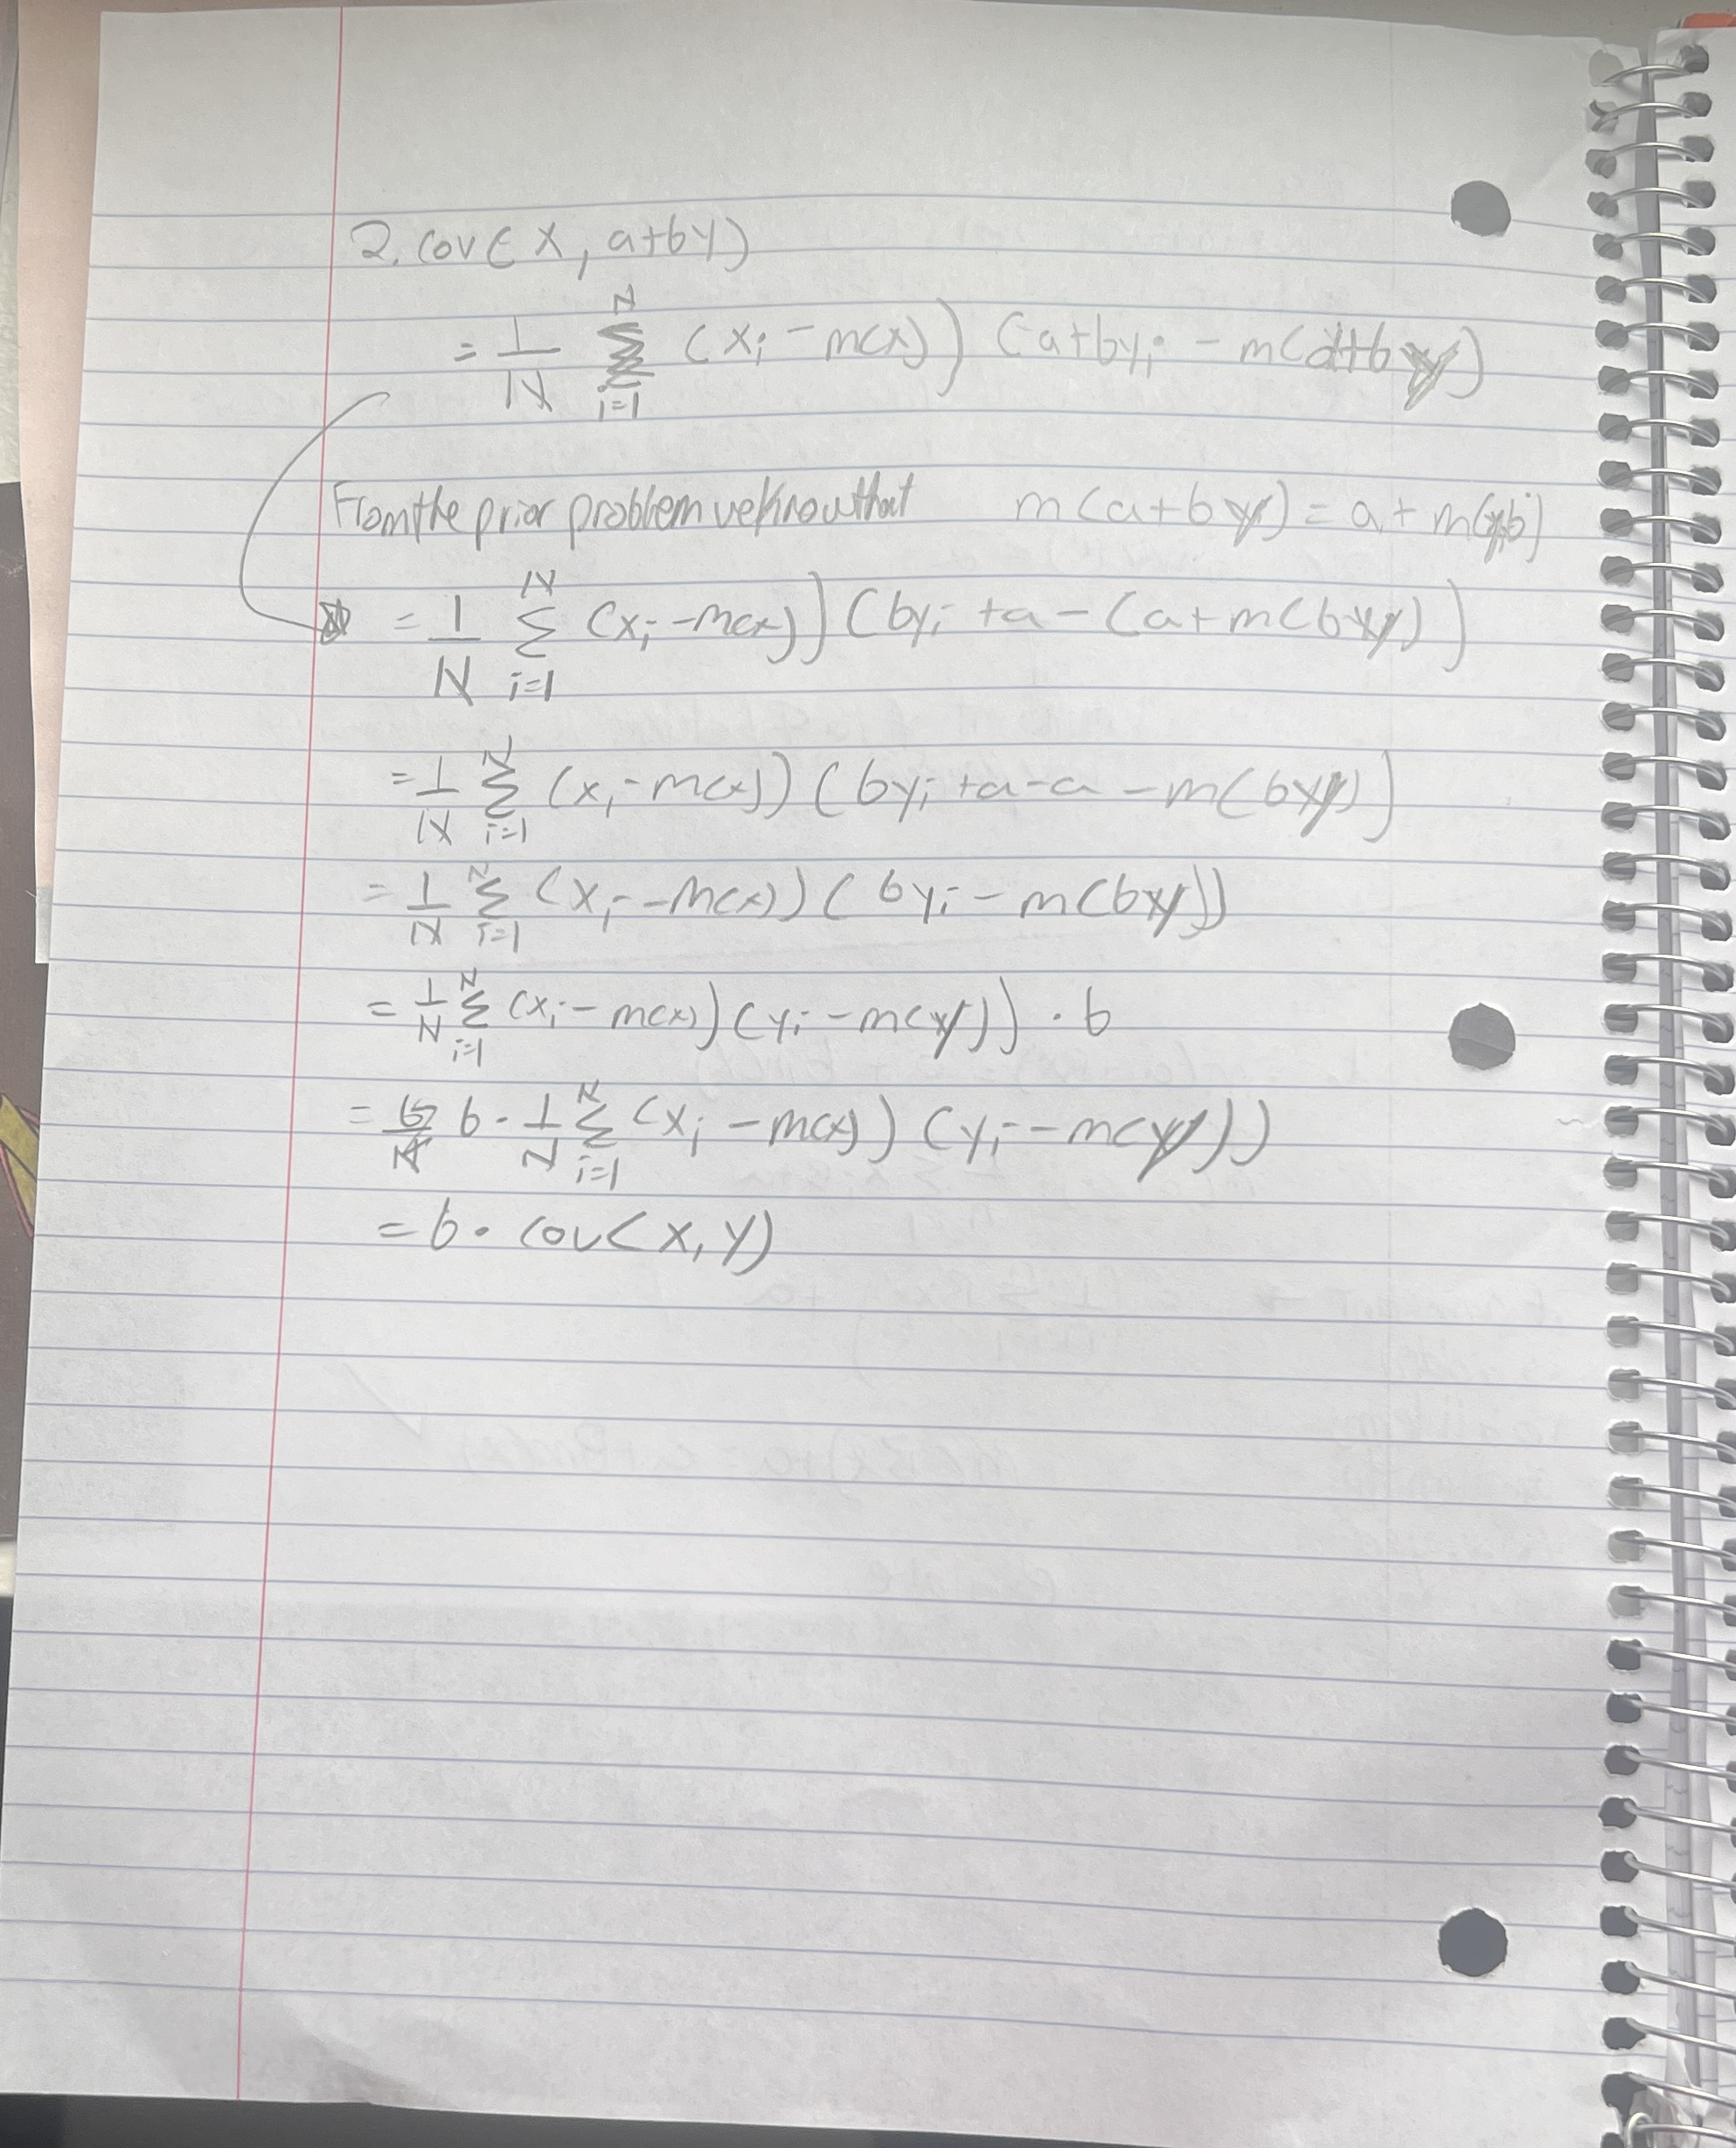 2. Cov(X, a+bY)
= 1/N N Σ i=1 (xi - m(x)) (a+byi - m(a+by)
From the prior problem we know that m(a+by) = a + m(yb)
= 1/N N Σ i=1 (xi - m(x)) (byi +a - (a+m(by))
= 1/N N Σ i=1 (xi - m(x)) (byi +a-a - m(by))
= 1/N N Σ i=1 (xi - m(x)) (byi - m(by))
= 1/N N Σ i=1 (xi - m(x)) (yi - m(y)) · b
= b · 1/N N Σ i=1 (xi - m(x)) (yi - m(y))
= b · Cov(X, Y)